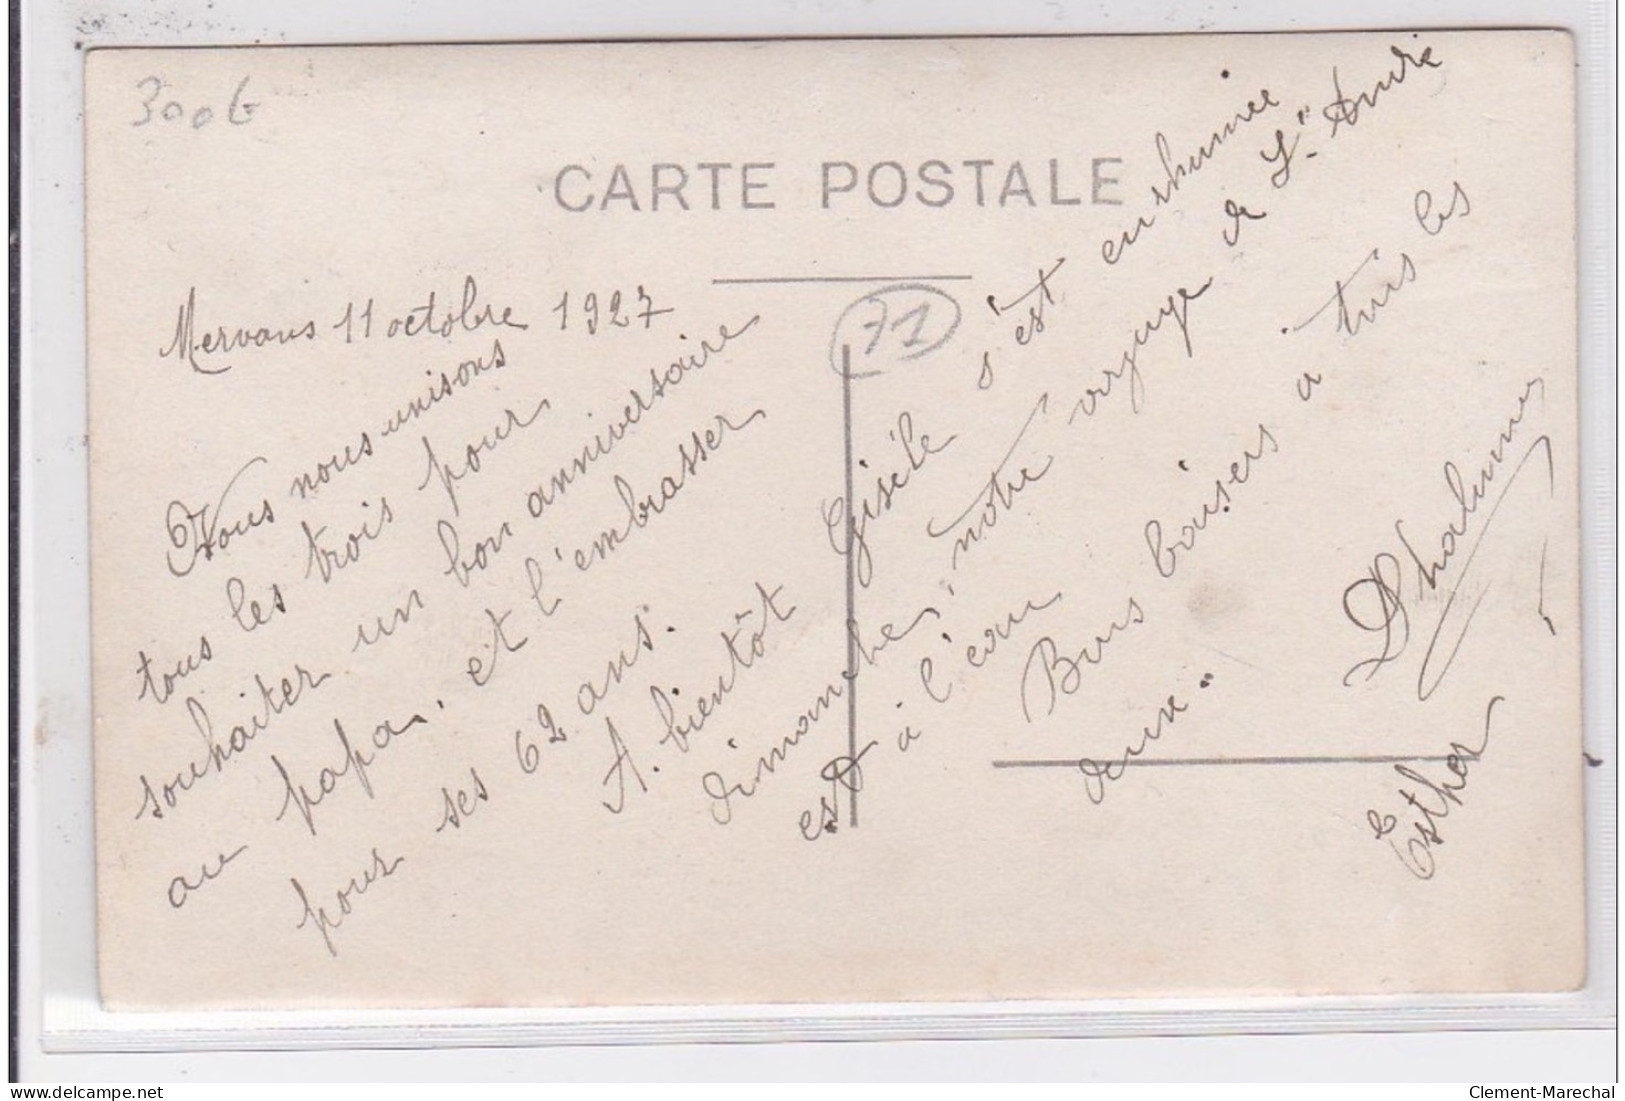 300 €
CARTE POSTALE
71
Mervans 11 octobre 1927
Nous nous unisons
tous les trois pour
souhaiter un bon anniversaire
au papa. et l'embrasser
pour ses 62 ans.
A bientôt
Gisèle s'est enrhumée
dimanche, notre voyage de St André
est à l'eau
Bons baisers à tous les
deux.
Esther
Clement-Marechal